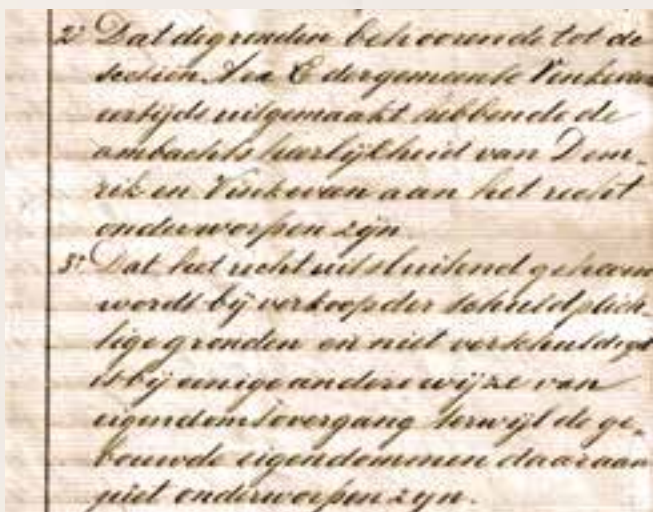 2º Dat de gronden behoorende tot de
sectien A en C der gemeente Vinkeveen
eertijds uitgemaakt hebbende de
ambachtsheerlijkheid van Dem-
rik en Vinkeveen aan het recht
onderworpen zijn.
3º Dat het recht uitsluitend geheven
wordt bij verkoop der schuldplich-
tige gronden en niet verschuldigd
is bij eenige andere wijze van
eigendomsovergang terwijl de ge-
bouwde eigendommen daaraan
niet onderworpen zyn.